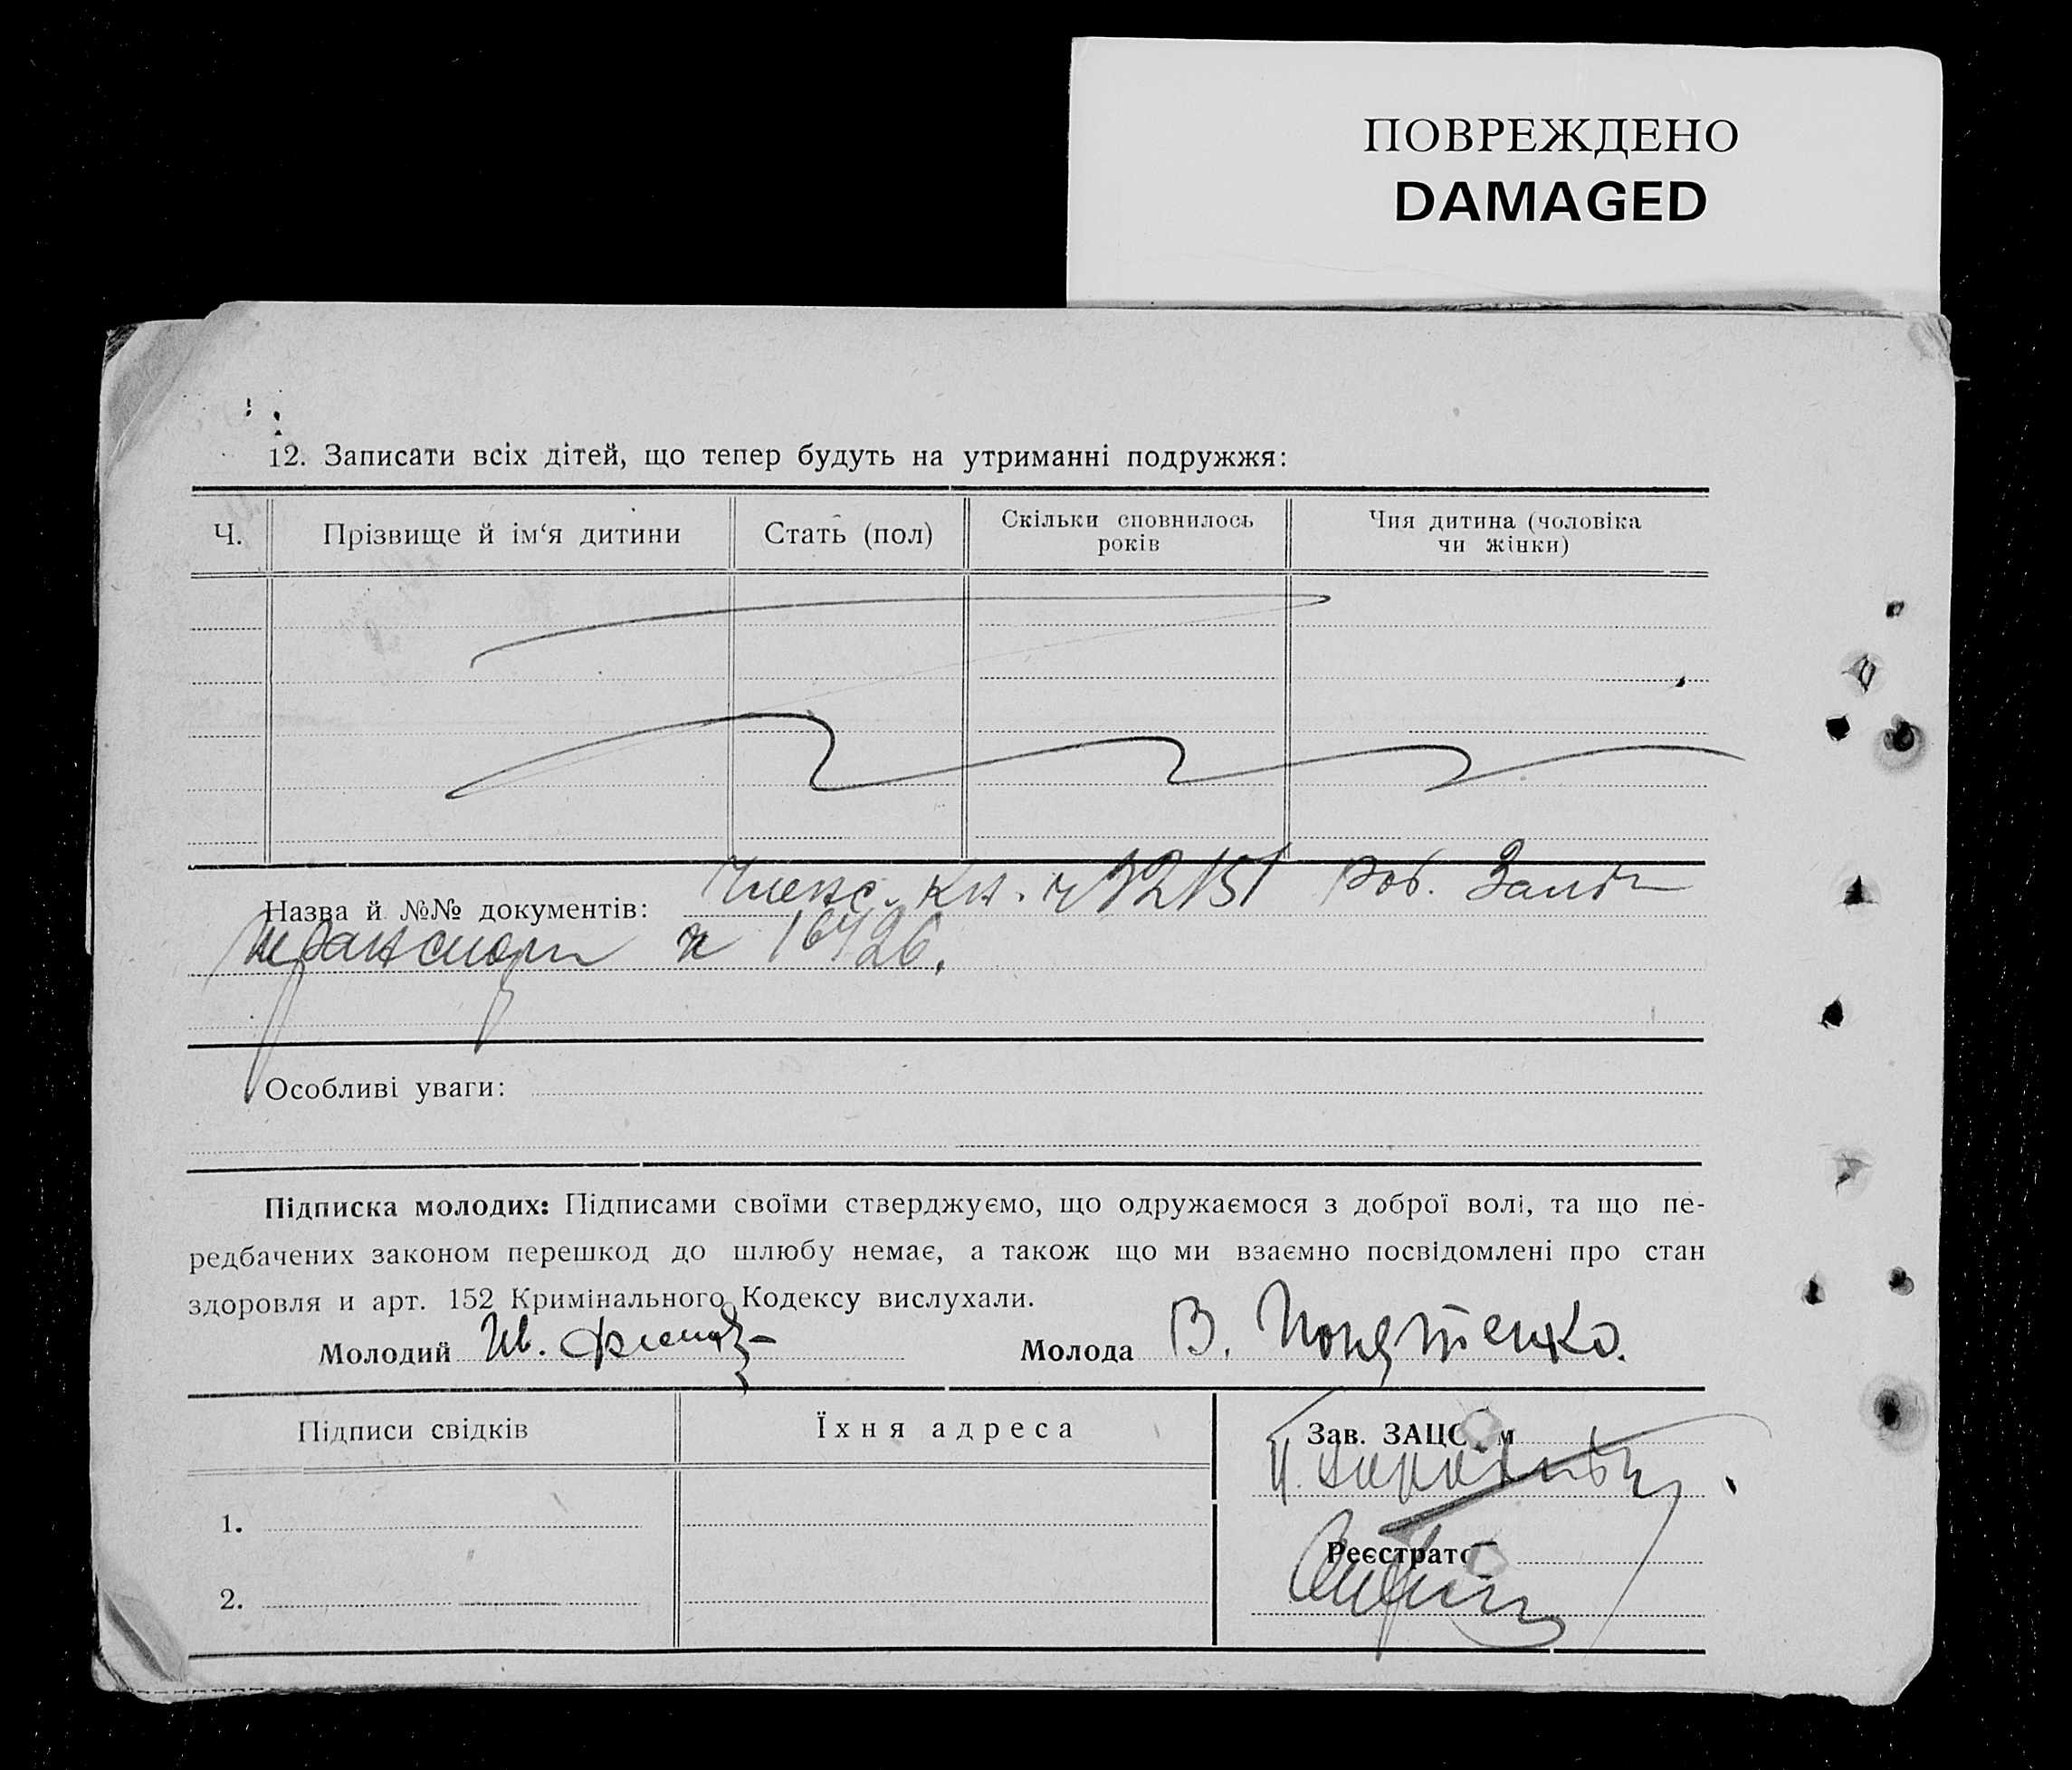 ПОВРЕЖДЕНО
DAMAGED
12. Записати всіх дітей, що тепер будуть на утриманні подружжя:
Ч. Прізвище й ім‘я дитини Стать (пол) Скільки сповнилось років Чия дитина (чоловіка чи жінки)
Назва й №№ документів: Членс. Кн. ч 32151 Роб. Заліз
транспорт ч 16426.
Особливі уваги:
Підписка молодих: Підписами своїми стверджуємо, що одружаємося з доброї волі, та що пе-
редбачених законом перешкод до шлюбу немає, а також що ми взаємно посвідомлені про стан
здоровля и арт. 152 Кримінального Кодексу вислухали.
Молодий Ив. Молода В. Понятенко.
Підписи свідків Їхня адреса Зав. ЗАЦС м
1.
Реєстрато
2.